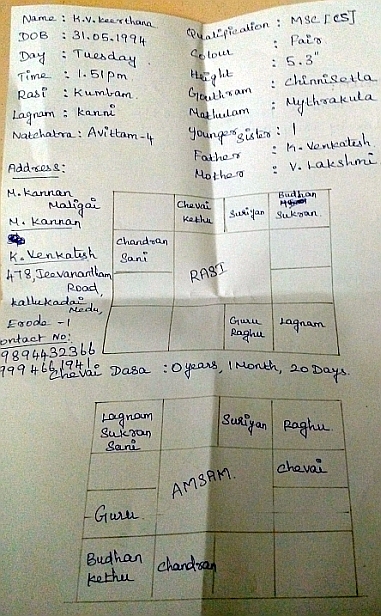 Name : K.V. Keerthana
DOB : 31.05.1994
Day : Tuesday
Time : 1.51pm
Rasi : Kumbam
Lagnam : Kanni
Natchatra : Avittam-4
Qualification : MSC [CS]
Colour : Fair
Height : 5.3"
Gouthram : Chinnisetla
Mathulam : Mythrakula
Younger Sister : 1
Father : K. Venkatesh
Mother : V. Lakshmi
Address:
M. Kannan
Maligai
M. Kannan
K. Venkatesh
478, Jeevanantham
Road,
Kallukadai
Medu,
Erode - 1
Contact No:
9894432366
999 466 1941
Chevai Kethu
Suriyan
Budhan
Sukran
Chandran
Sani
RASI
Guru
Raghu
Lagnam
Chevai Dasa : 0 years, 1 Month, 20 Days.
Lagnam
Sukran
Sani
Suriyan
Raghu
AMSAM
Chevai
Guru
Budhan
Kethu
Chandran